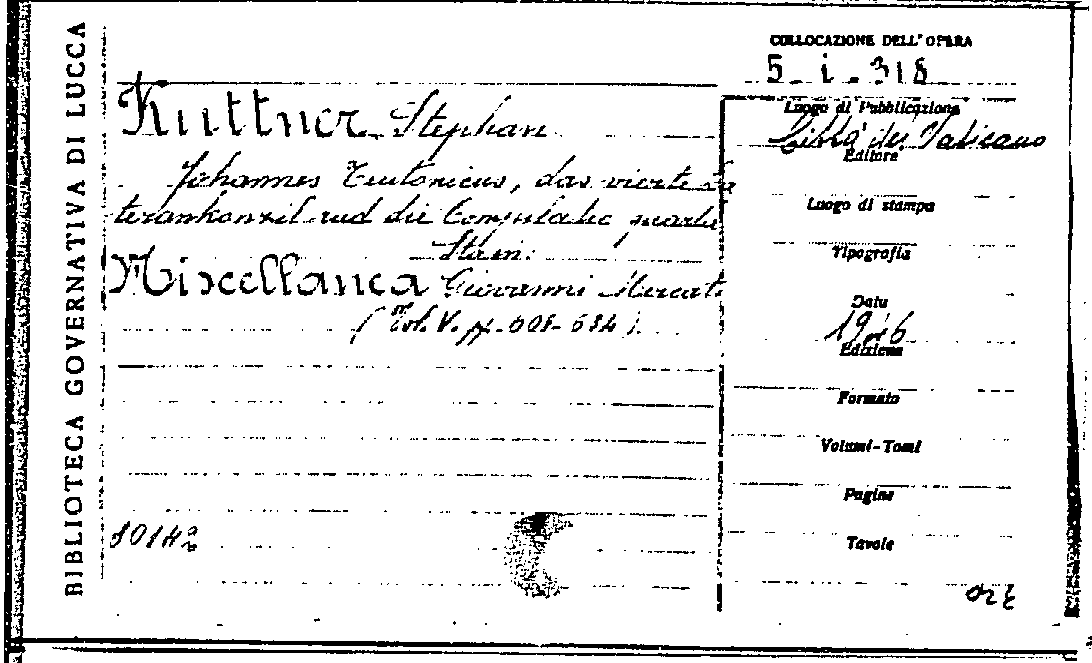 BIBLIOTECA GOVERNATIVA DI LUCCA
COLLOCAZIONE DELL'OPERA
5 - i - 318
Kuttner Stephan
Johannes Teutonicus, das vierte La
terankonzil und die Compilatio quarta
Stain:
Miscellanea Giovanni Mercati
(Vol. V. pp. 608-634).
80142
Luogo di Pubblicazione
Città del Vaticano
Editore
Luogo di stampa
Tipografia
Data
1946
Edizione
Formato
Volumi-Tomi
Pagine
Tavole